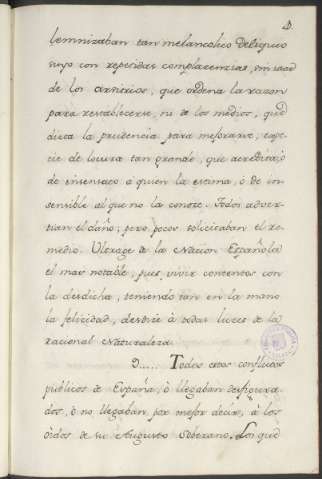 4.
lemnizaban tan melancolico deliquio
suyo con repetidas complacencias, sin usar
de los arvitrios, que ordena la razon
para restablecerse, ni de los medios, que
dicta la prudencia para mejorarse; espe-
cie de locura tan grande, que acredita, ó
de insensato a quien la estima, ó de in-
sensible al que no la conoce. Todos adver-
tian el daño; pero pocos solicitaban el re-
medio. Ultrage de la Nacion Española
el mas notable, pues vivir contentos con
la desdicha, teniendo tan en la mano
la felicidad, desdice à todas luces de la
racional Naturaleza.
2..... Todos estos conflictos
publicos de España, ó llegaban desfigura-
dos, ó no llegaban, por mejor decir, à los
òidos de su Augusto Soberano. Los que